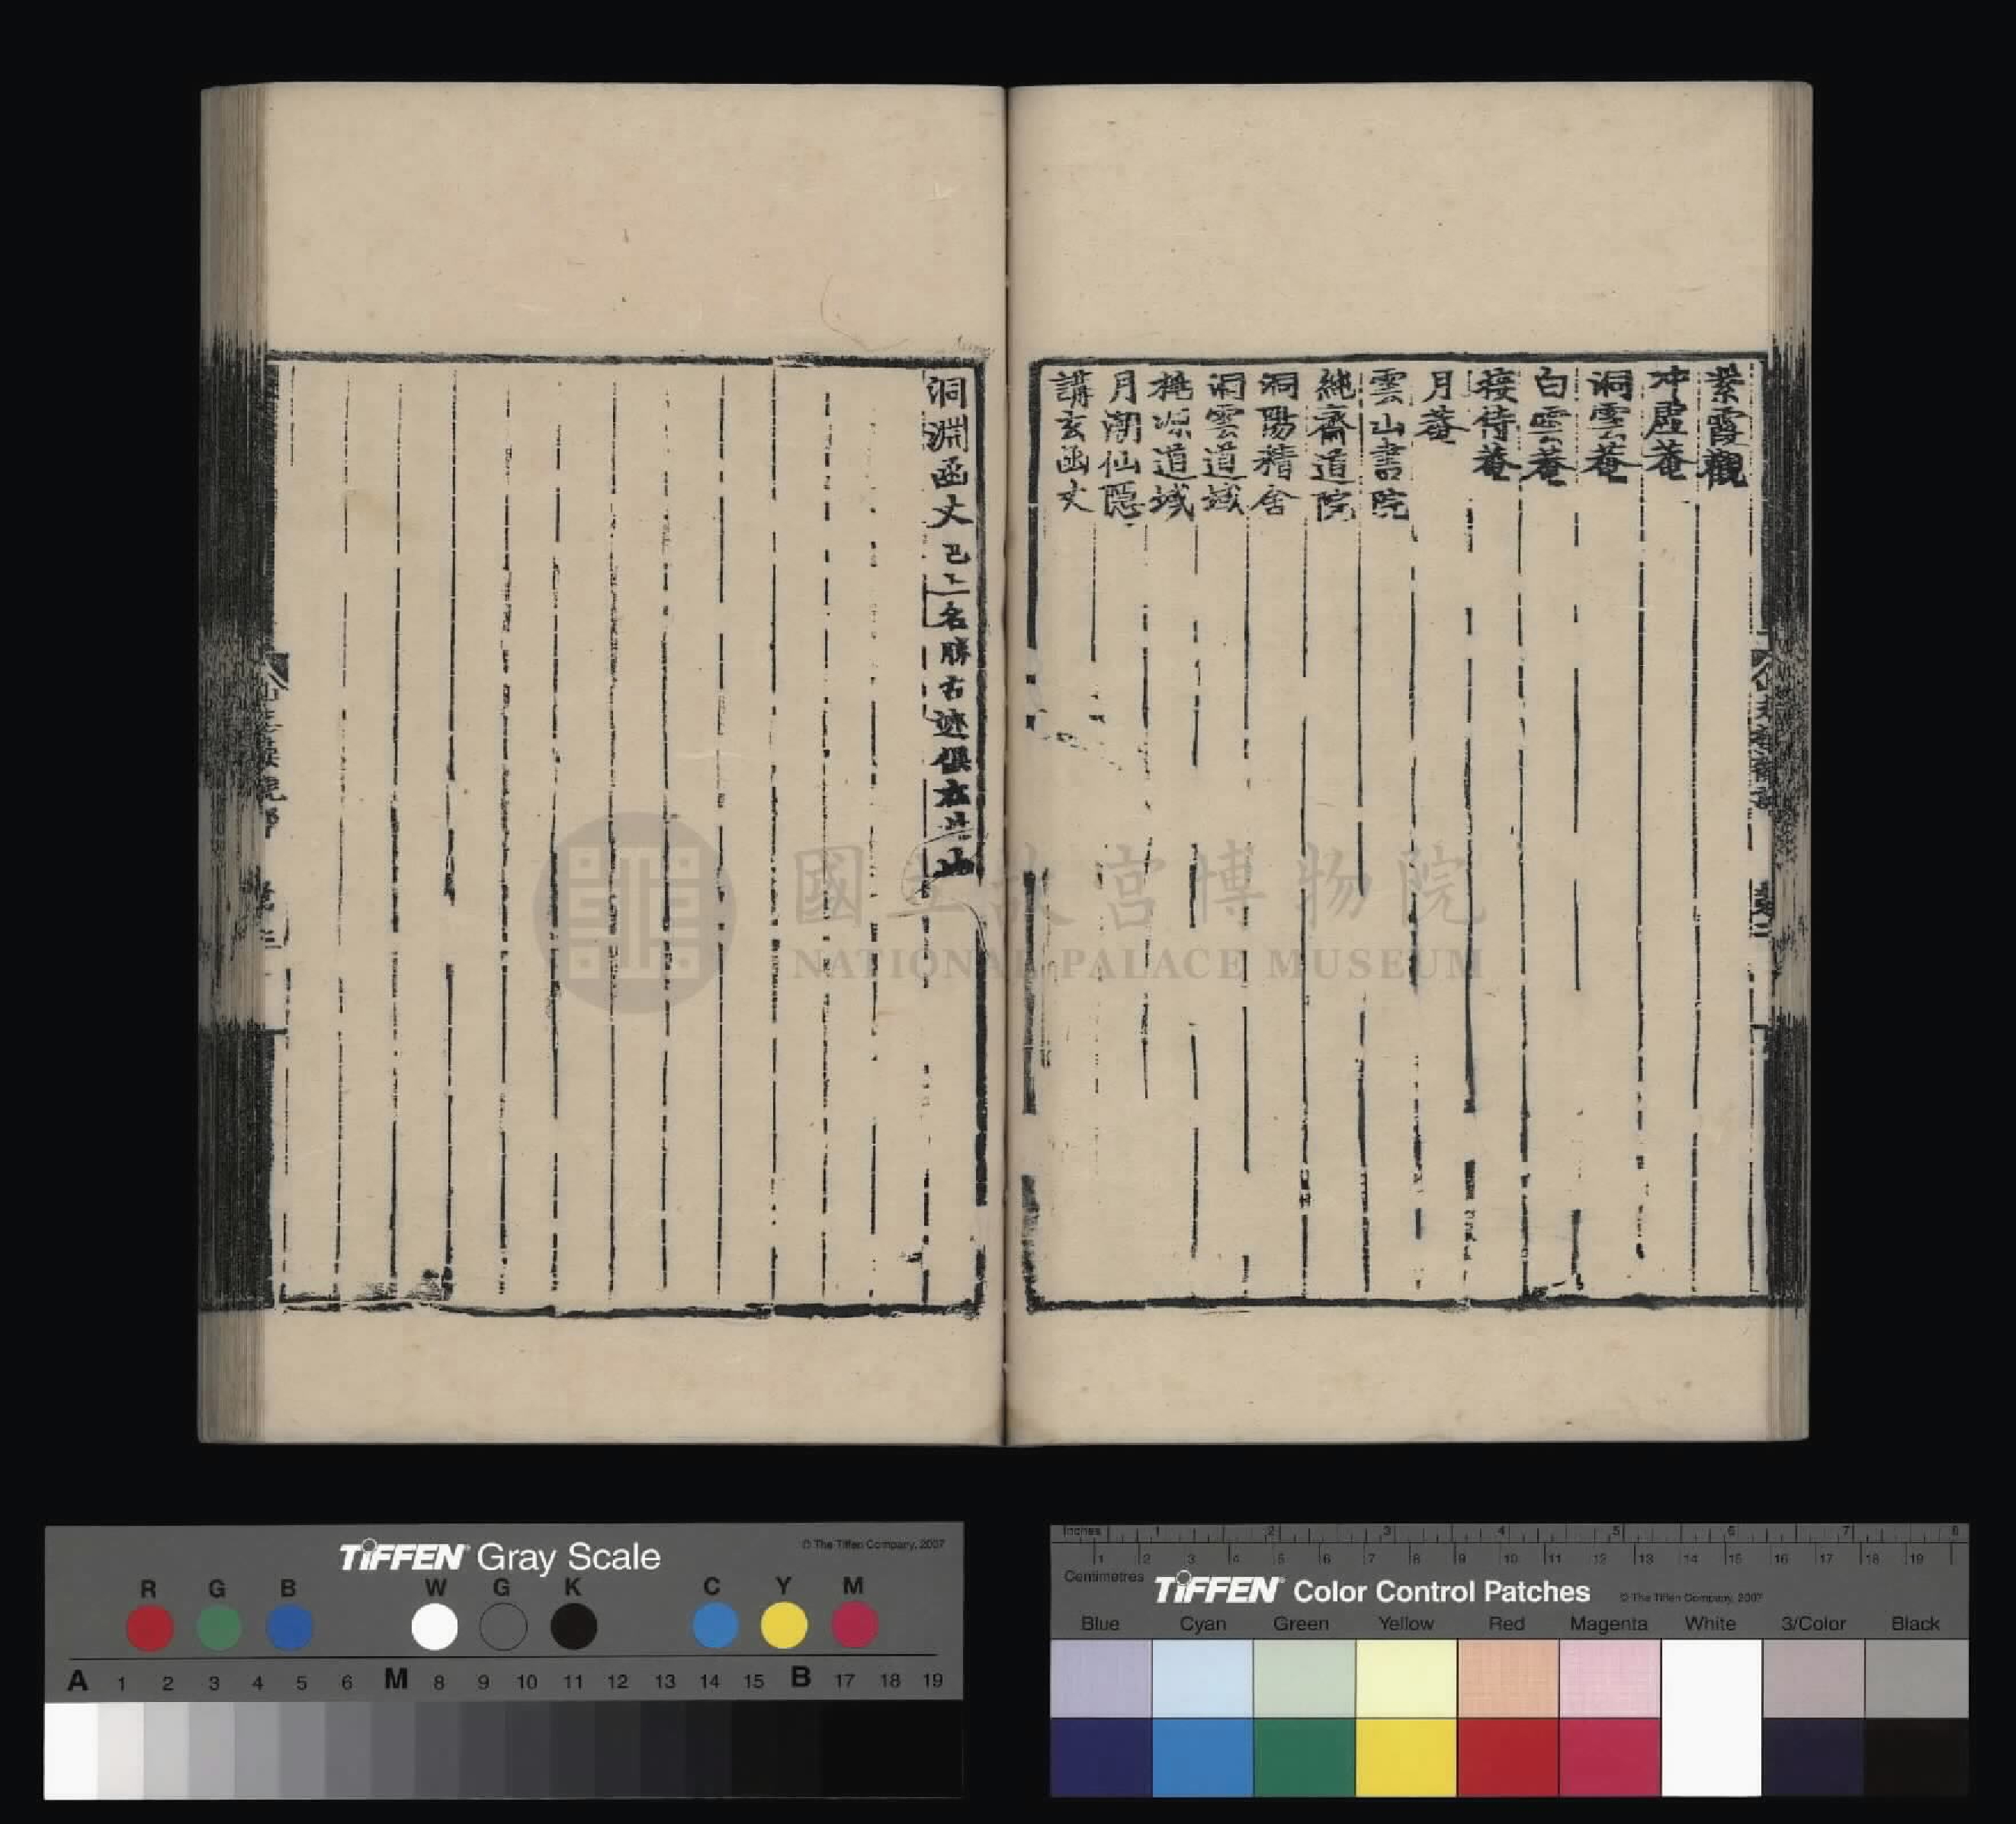 紫霞觀
冲虛菴
洞雲菴
白雲菴
接待菴
月菴
雲山書院
純齋道院
洞陽精舍
洞雲道域
桃源道域
月潮仙隱
講玄函丈
洞淵函丈 已上名勝古迹俱在此山
國立故宮博物院
NATIONAL PALACE MUSEUM
TIFFEN Gray Scale
© The Tiffen Company, 2007
R G B W G K C Y M
A 1 2 3 4 5 6 M 8 9 10 11 12 13 14 15 B 17 18 19
Inches 1 2 3 4 5 6 7 8
1 2 3 4 5 6 7 8 9 10 11 12 13 14 15 16 17 18 19
Centimetres
TIFFEN Color Control Patches
© The Tiffen Company, 2007
Blue Cyan Green Yellow Red Magenta White 3/Color Black